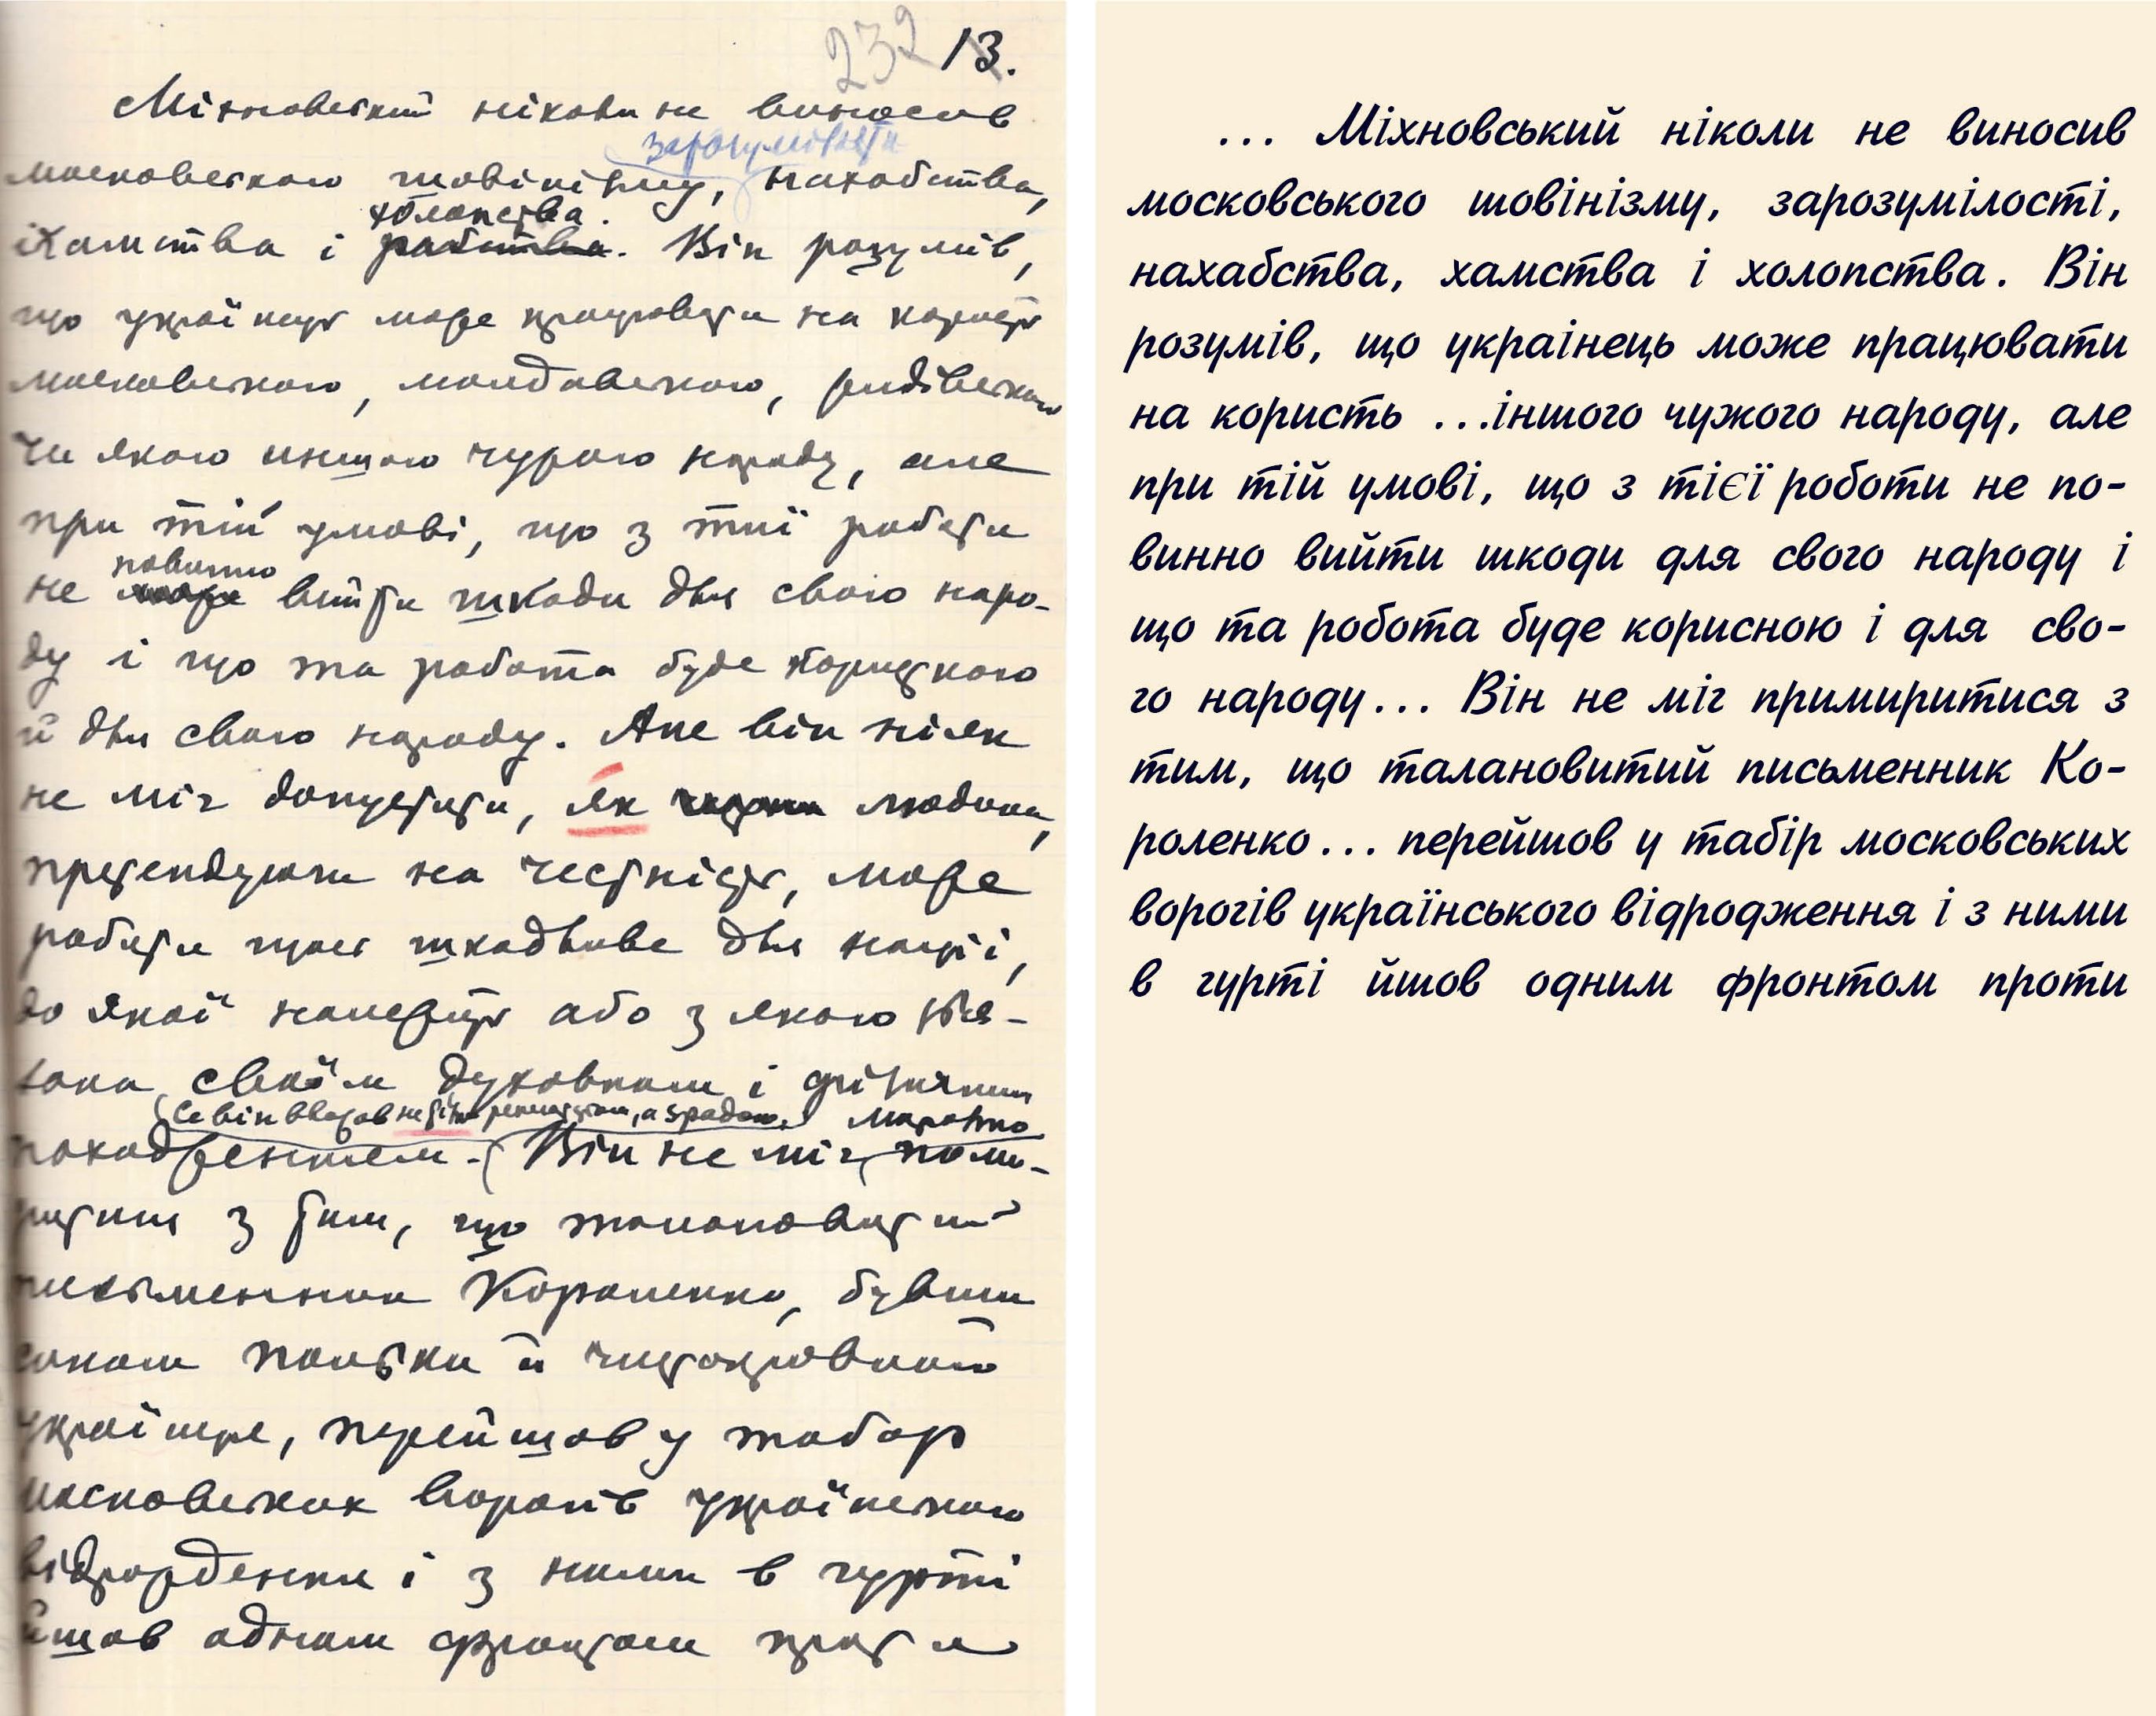 232 13.
Міхновський ніколи не виносив
зарозумілости
московського шовінізму, нахабства,
холопства.
і хамства і рабства. Він розумів,
що українець може працювати на користь
московського, молдавського, жидівського
чи якого иншого чужого народу, але
при тій умові, що з тиї роботи
повинно
не може вийти шкоди для свого наро-
ду і що та робота буде корисною
й для свого народу. Але він ніяк
не міг допустити, як людина,
претендуючи на чесність, може
робити щось шкодливе для нації,
до якої належить або з якою звя-
зана своїм духовним і фізичним
Се він вважав не ренегатством, а зрадою. морально
походженням. Він не міг поми-
ритися з тим, що талановитий
письменник Короленко, бувши
сином польки й чистокровного
українця, перейшов у табор
московських ворогів українського
відродження і з ними в гурті
йшов одним фронтом проти
... Міхновський ніколи не виносив
московського шовінізму, зарозумілості,
нахабства, хамства і холопства. Він
розумів, що украінець може працювати
на користь ...іншого чужого народу, але
при тій умові, що з тієї роботи не по-
винно вийти шкоди для свого народу і
що та робота буде корисною і для сво-
го народу... Він не міг примиритися з
тим, що талановитий письменник Ко-
роленко... перейшов у табір московських
ворогів українського відродження і з ними
в гурті йшов одним фронтом проти